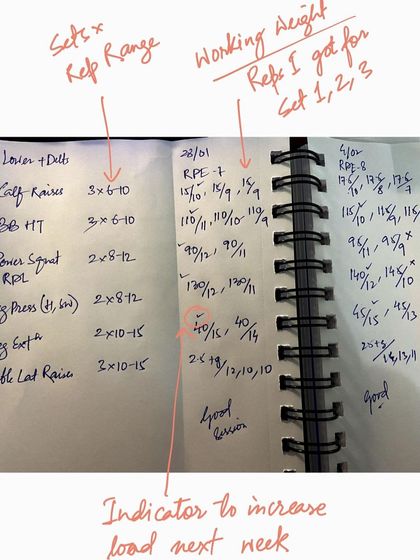 Sets x
Rep Range
Working Weight
Reps I got for
Set 1, 2, 3
Lower + Delts
28/01
RPE - 7
4/02
RPE-8
Calf Raises 3 x 6-10 15/10, 15/9, 15/9 17.5/8, 17.5/7
BB HT 3 x 6-10 110/11, 110/10, 110/9 115/10, 115/9, 115
Power Squat 2 x 8-12 90/12, 90/11 95/11, 95/9 x
RDL 130/12, 130/11 140/12, 145/10 x
Press (H, SW) 2 x 8-12
Ext 2 x 10-15 40/15, 40/14 45/15, 45/13
Lat Raises 3 x 10-15 2.5 + /12, 10, 10 2.5 + /14, 13, 11
Good
Session
Good
Indicator to increase
load next week